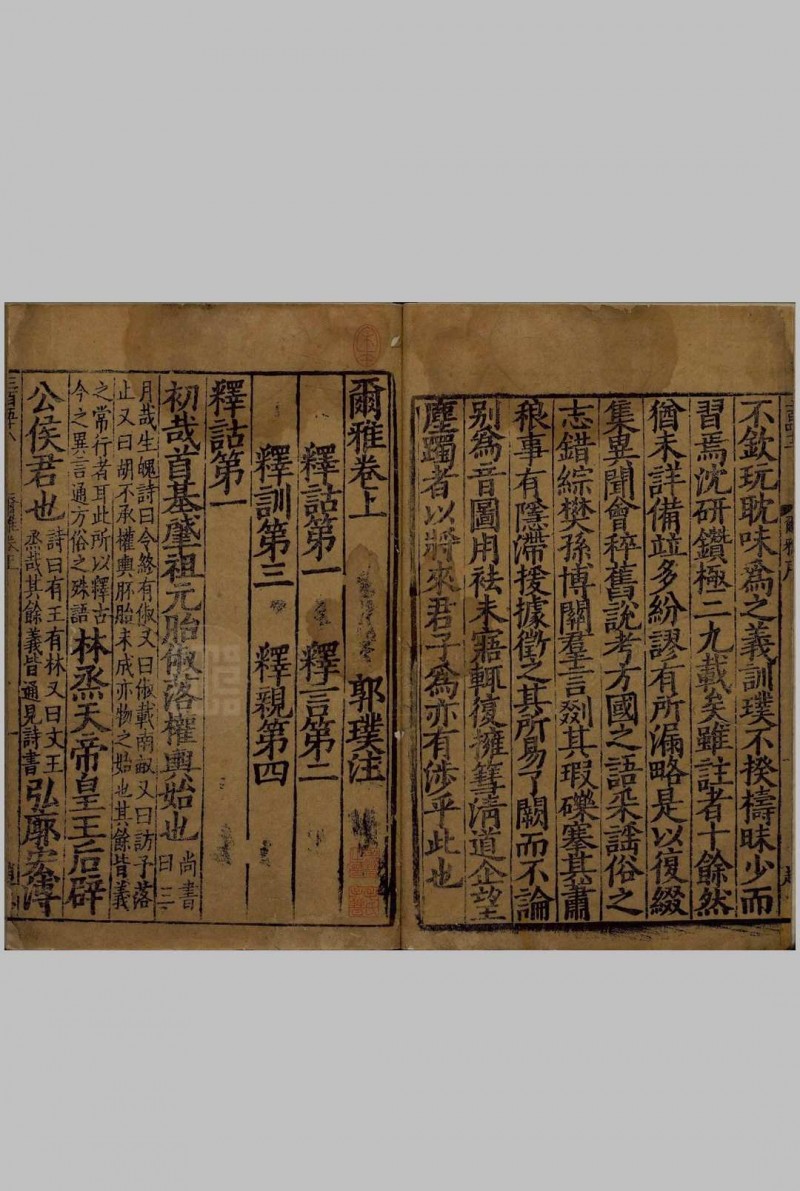 不欽玩耽味爲之義訓璞不揆檮昧少而
習焉沈研鑽極二九載矣雖註者十餘然
猶未詳備竝多紛謬有所漏略是以復綴
集異聞會稡舊說考方國之語采謡俗之
志錯綜樊孫博關羣言剟其瑕礫搴其蕭
稂事有隱滯援據徵之其所易了闕而不論
别爲音圖用袪未寤輒復擁篲清道企望
塵躅者以將來君子爲亦有涉乎此也
爾雅卷上 郭璞注
釋詁第一 釋言第二
釋訓第三 釋親第四
釋詁第一
初哉首基肇祖元胎俶落權輿始也 尚書曰三
月哉生魄詩曰令終有俶又曰俶載南畝又曰訪予落
止又曰胡不承權輿胚胎未成亦物之始也其餘皆義
之常行者耳此所以釋古
今之異言通方俗之殊語 林烝天帝皇王后辟
公侯君也 詩曰有王有林又曰文王
烝哉其餘義皆通見詩書 弘廓宏溥